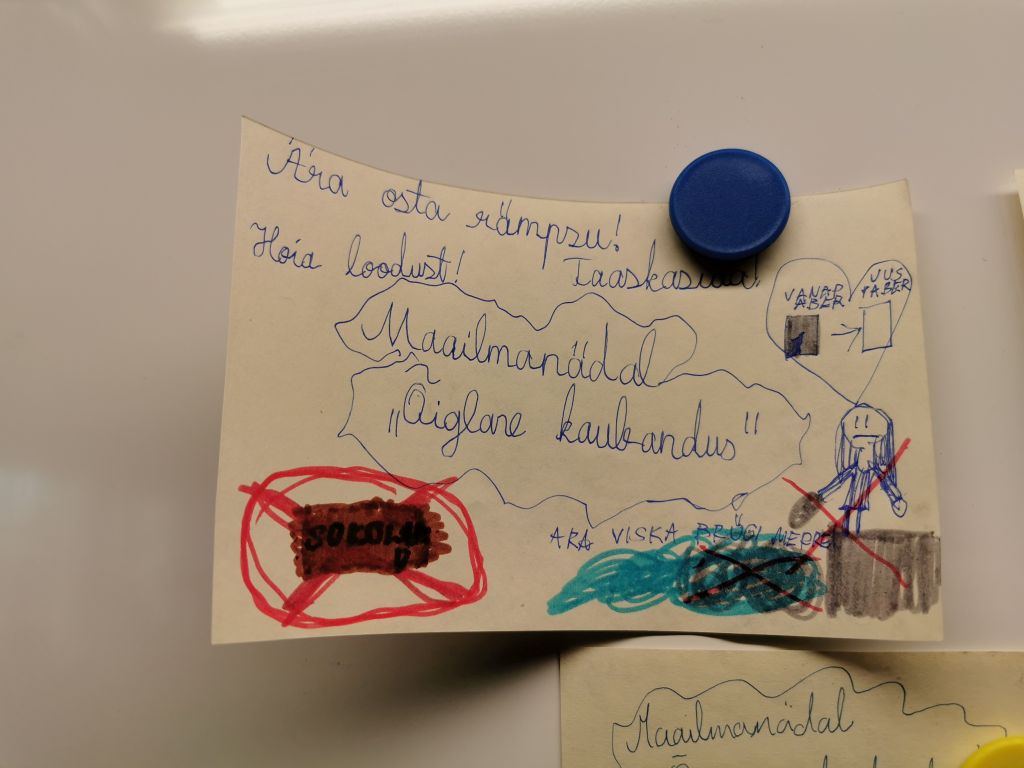 Ära osta rämpsu!
Hoia loodust! Taaskasuta!
VANAP JUS
ABER PABER
Maailmanädal
„Õiglane kaubandus“
SOKOLAA
D
ARA VISKA PRÜGI MERRE
Maailmanädal